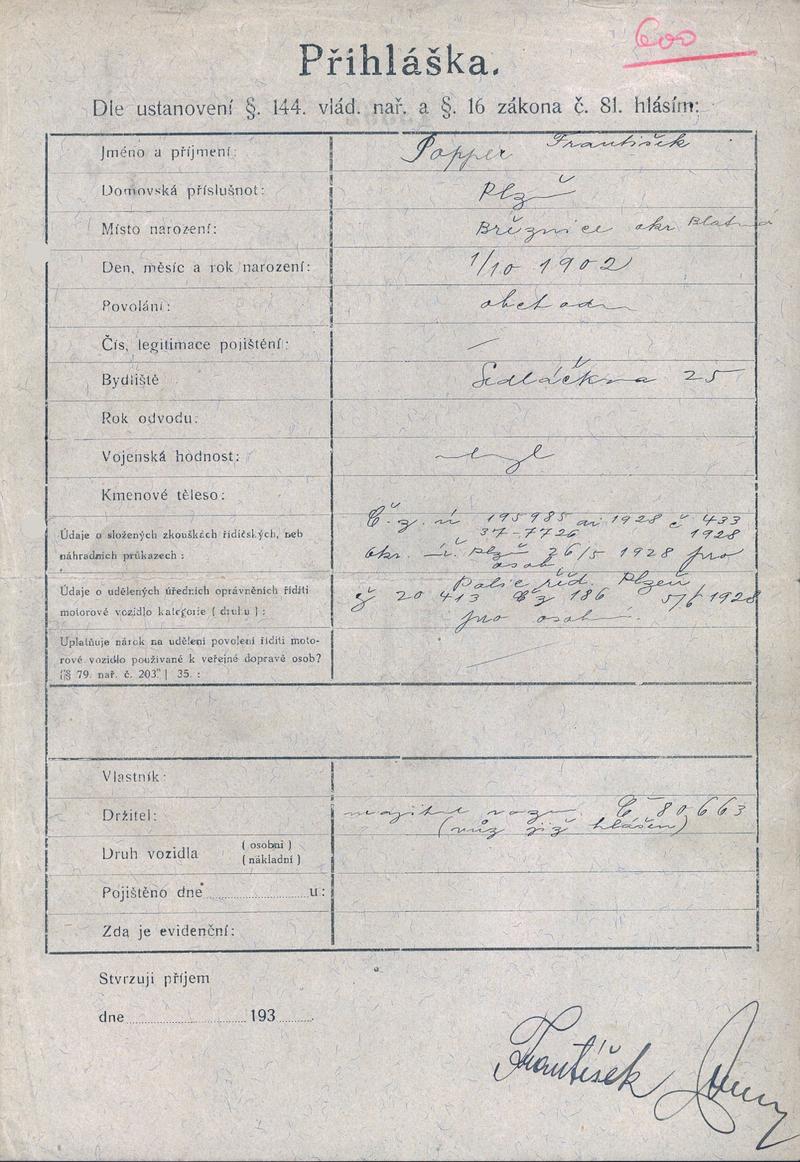 600
Přihláška.
Dle ustanovení §. 144. vlád. nař. a §. 16 zákona č. 81. hlásím:
Jméno a příjmení: Popper František
Domovská příslušnot: Plzň
Místo narození: Březnice okr Blatná
Den, měsíc a rok narození: 1/10 1902
Povolání: obchodn
Čís, legitimace pojištění: —
Bydliště Sedláčkva 25
Rok odvodu:
Vojenská hodnost:
Kmenové těleso:
Údaje o složených zkouškách řidičských, neb
náhradních průkazech:
Č. z. 195985 ai 1928 č 433
37-7726 1928
okr. Plzň 26/5 1928 pro
osob
Údaje o udělených úředních oprávněních říditi
motorové vozidlo kategorie (druhu):
Polic řed. Plzeň
č 20 413 Čz 186 5/6 1928
pro osobní.
Uplatňuje nárok na udělení povolení říditi moto-
rové vozidlo používané k veřejné dopravě osob?
(§ 79. nař. č. 203. | 35.:
Vlastník:
Držitel: majitel vozu Č 80663
(vůz již hlášen)
Druh vozidla (osobní)
(nákladní)
Pojištěno dne u:
Zda je evidenční:
Stvrzuji příjem
dne 193
František